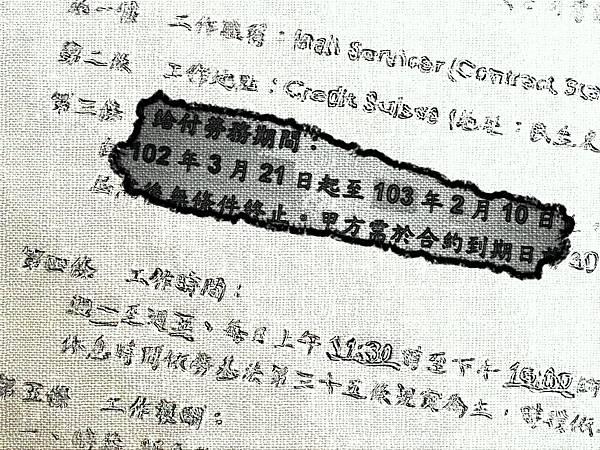 第一條 工作職稱：Mail Servicer (Contract Sta
第二條 工作地點：Credit Suisse (地址：民生東
第三條 給付勞務期間：
102 年 3 月 21 日起至 103 年 2 月 10 日
後無條件終止。甲方需於合約到期日前 30
第四條 工作時間：
週一至週五、每日上午 11:30 時至下午
休息時間依勞基法第三十五條規定為主，
第五條 工作範圍：
一、